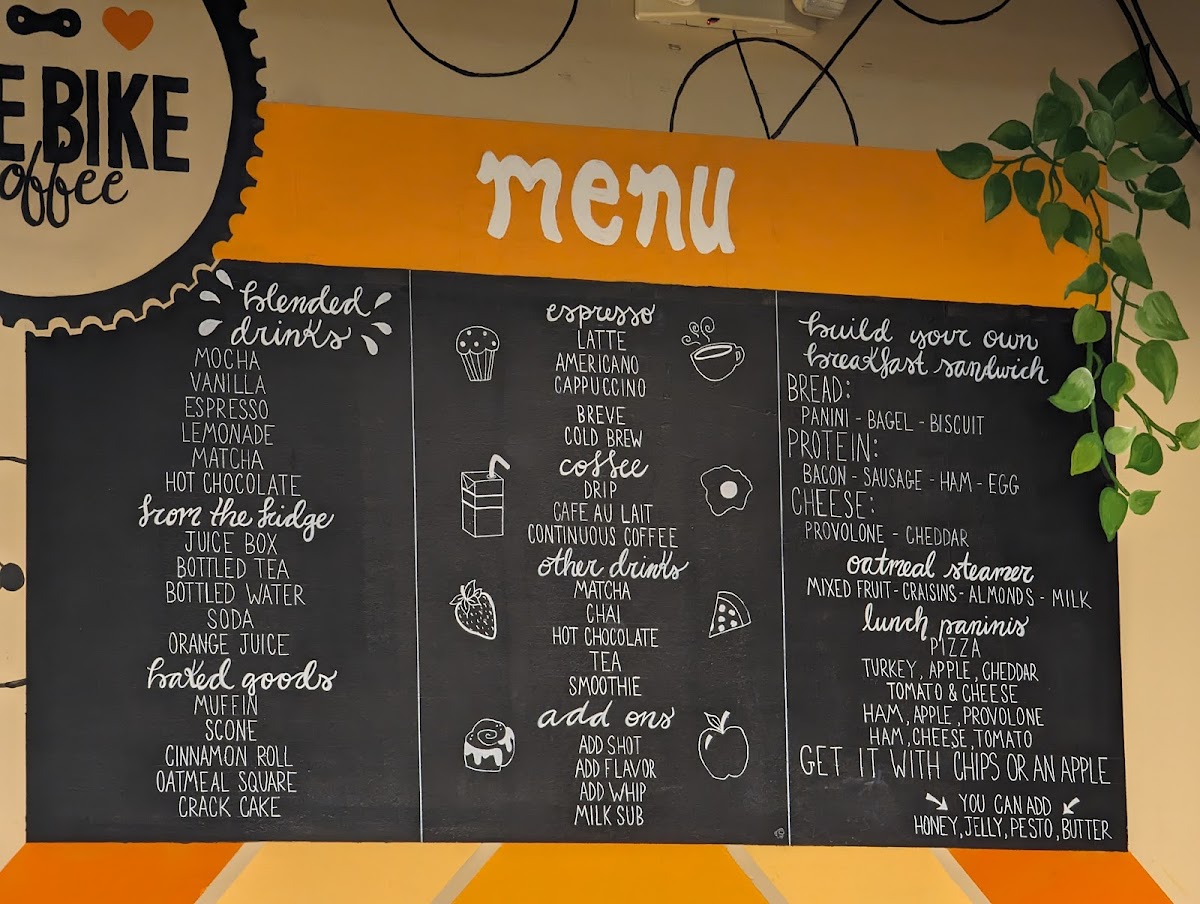 BIKE
offee
menu
blended
drinks
MOCHA
VANILLA
ESPRESSO
LEMONADE
MATCHA
HOT CHOCOLATE
from the fridge
JUICE BOX
BOTTLED TEA
BOTTLED WATER
SODA
ORANGE JUICE
baked goods
MUFFIN
SCONE
CINNAMON ROLL
OATMEAL SQUARE
CRACK CAKE
espresso
LATTE
AMERICANO
CAPPUCCINO
BREVE
COLD BREW
coffee
DRIP
CAFE AU LAIT
CONTINUOUS COFFEE
other drinks
MATCHA
CHAI
HOT CHOCOLATE
TEA
SMOOTHIE
add ons
ADD SHOT
ADD FLAVOR
ADD WHIP
MILK SUB
build your own
breakfast sandwich
BREAD:
PANINI - BAGEL - BISCUIT
PROTEIN:
BACON - SAUSAGE - HAM - EGG
CHEESE:
PROVOLONE - CHEDDAR
oatmeal steamer
MIXED FRUIT - CRAISINS - ALMONDS - MILK
lunch paninis
PIZZA
TURKEY, APPLE, CHEDDAR
TOMATO & CHEESE
HAM, APPLE, PROVOLONE
HAM, CHEESE, TOMATO
GET IT WITH CHIPS OR AN APPLE
YOU CAN ADD
HONEY, JELLY, PESTO, BUTTER